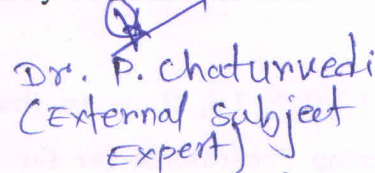 Dr. P. Chaturvedi
(External Subject
Expert)